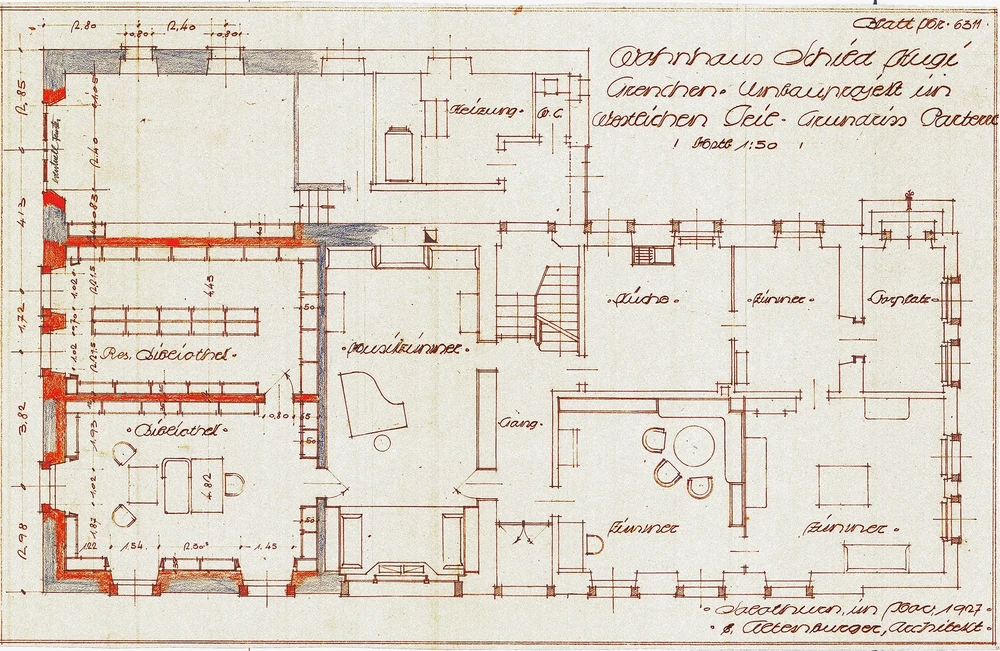 Blatt Nr. 6311.
Wohnhaus Schild Hugi
Grenchen. Umbauprojekt im
Westlichen Teil. Grundriss Parterre
Mstb. 1:50
2,80
2,40
0,80
0,80
2,85
4.13
1,72
3,82
2,98
2,40
Heizung.
W.C.
1.02
70
1.02
4.45
50
Res. Bibliothek.
Musikzimmer.
Küche
Zimmer.
Vorplatz.
Bibliothek.
0,80
65
50
1.93
1.02
1.87
4.82
50
Gang.
1.22
1.54
2.80
1.45
Zimmer
Zimmer.
Solothurn, im Nov. 1927.
E. Altenburger, Architekt.